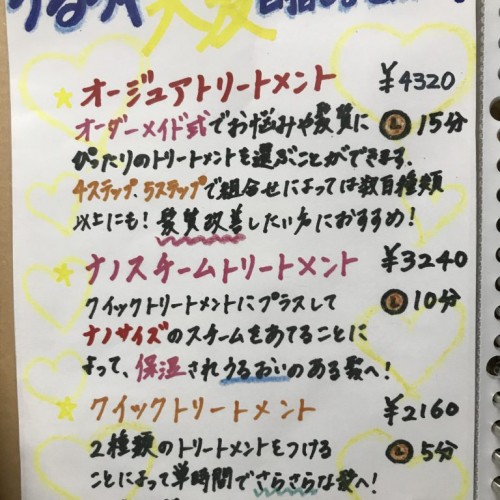 ★オージュアトリートメント ¥4320
オーダーメイド式でお悩みや髪質に 15分
ぴったりのトリートメントを選ぶことができます.
4ステップ、5ステップで組合せによっては数百種類
以上にも！髪質改善したい方におすすめ！
★ナノスチームトリートメント ¥3240
クイックトリートメントにプラスして 10分
ナノサイズのスチームをあてることに
よって、保湿されうるおいのある髪へ！
★クイックトリートメント ¥2160
2種類のトリートメントをつける 5分
ことによって単時間でさらさらな髪へ！